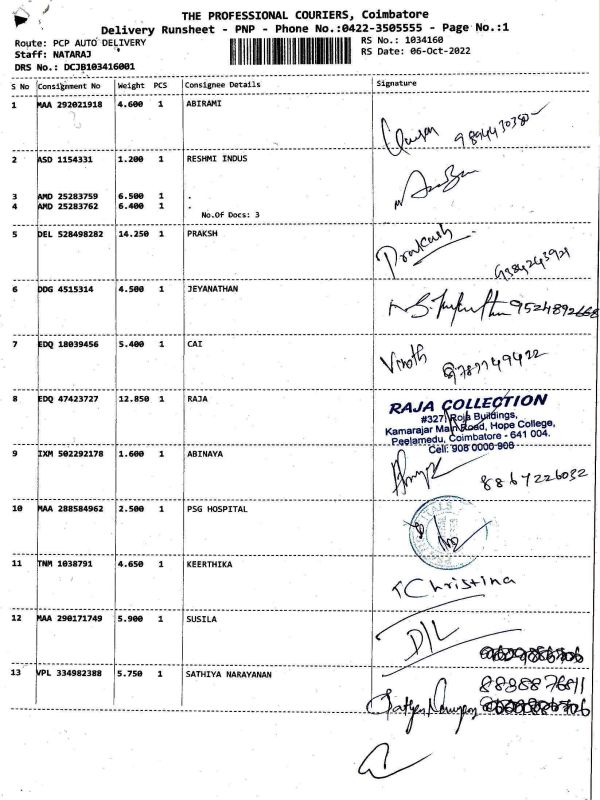 THE PROFESSIONAL COURIERS, Coimbatore
Delivery Runsheet - PNP - Phone No.:0422-3505555 - Page No.:1
Route: PCP AUTO DELIVERY
RS No.: 1034160
Staff: NATARAJ
RS Date: 06-Oct-2022
DRS No.: DCJB103416001
S No Consignment No Weight PCS Consignee Details Signature
1 MAA 292021918 4.600 1 ABIRAMI
2 ASD 1154331 1.200 1 RESHMI INDUS
3 AMD 25283759 6.500 1 .
4 AMD 25283762 6.400 1 .
No.Of Docs: 3
5 DEL 528498282 14.250 1 PRAKSH
Prakash
9384243921
6 DDG 4515314 4.500 1 JEYANATHAN
9524892668
7 EDQ 18039456 5.400 1 CAI
Vinoth
8 EDQ 47423727 12.850 1 RAJA
RAJA COLLECTION
#327, Roja Buildings,
Kamarajar Main Road, Hope College,
Peelamedu, Coimbatore - 641 004.
Cell: 908 0000 908
9 IXM 502292178 1.600 1 ABINAYA
8867226032
10 MAA 288584962 2.500 1 PSG HOSPITAL
11 TNM 1038791 4.650 1 KEERTHIKA
Christina
12 MAA 290171749 5.900 1 SUSILA
D/L
13 VPL 334982388 5.750 1 SATHIYA NARAYANAN
8838876811